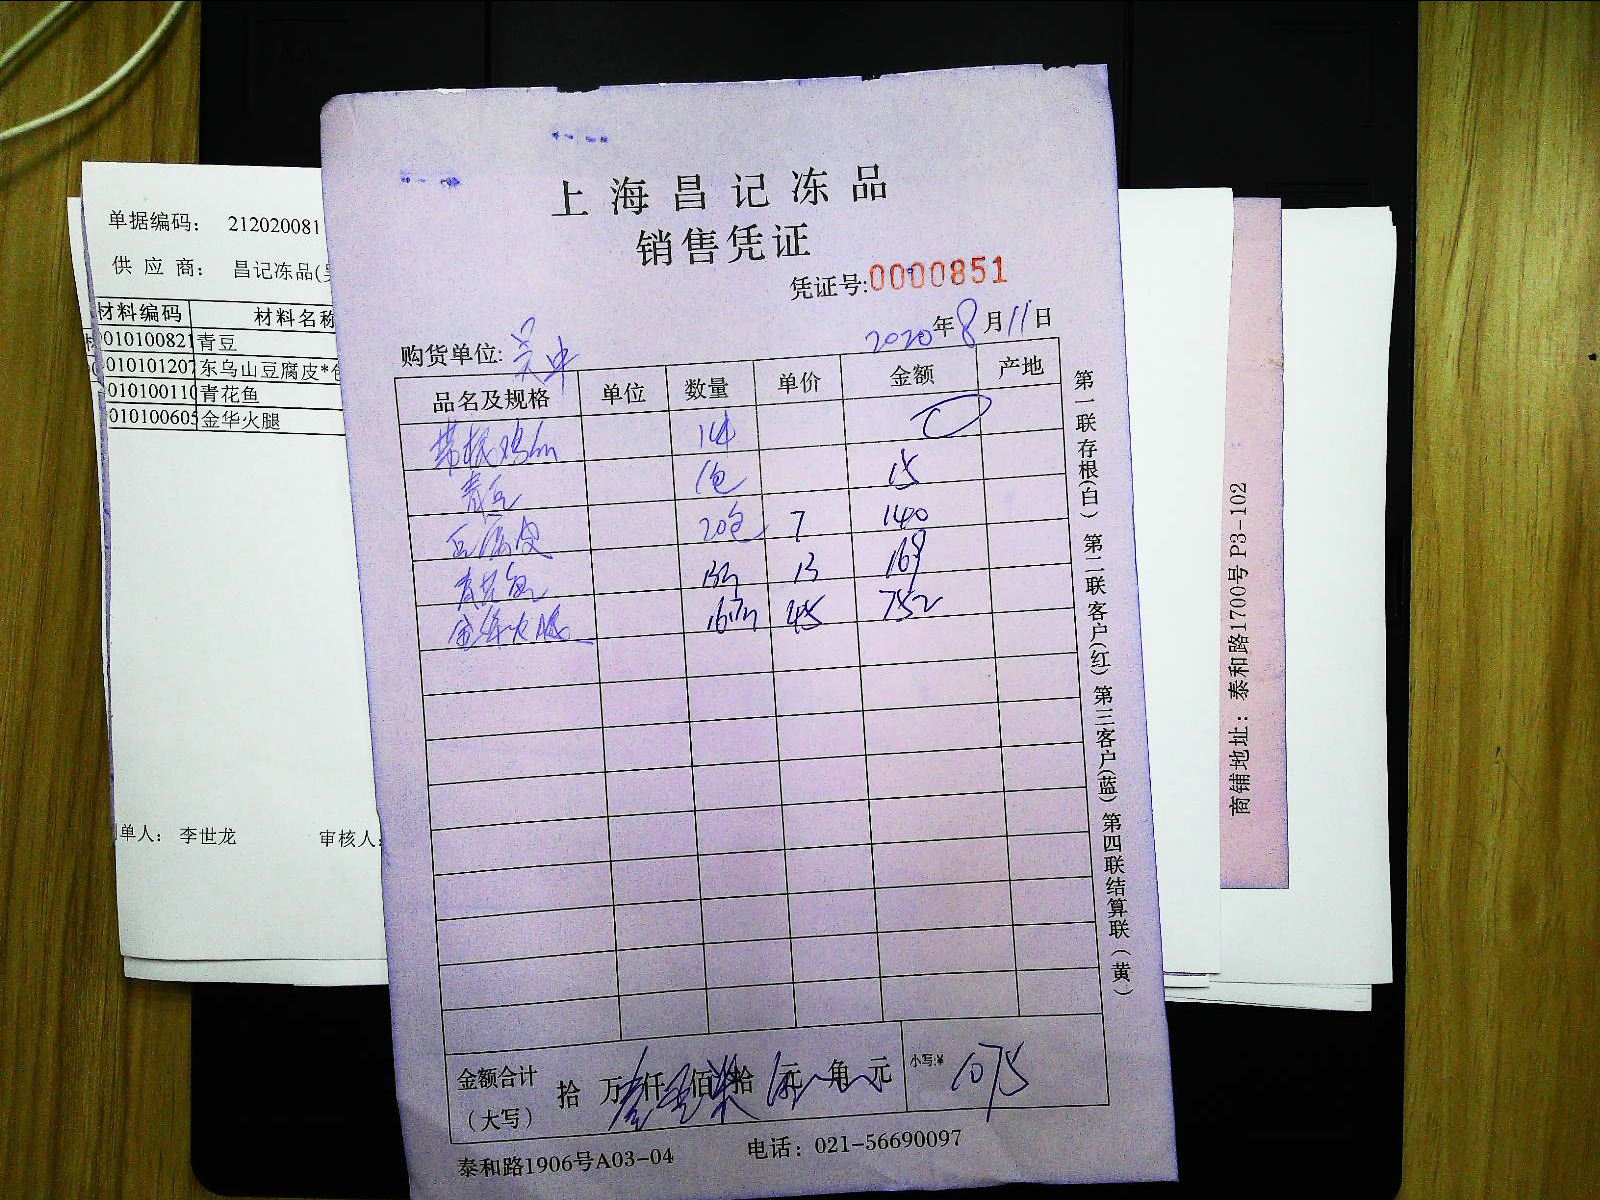 上海昌记冻品
销售凭证
凭证号:0000851
购货单位: 吴中 2020年8月11日
品名及规格 单位 数量 单价 金额 产地
青豆 1包 15
豆腐皮 20包 7 140
青花鱼 13 169
金华火腿 45 752
金额合计 拾 万 仟 佰 拾 元 角 元 小写:¥ 1075
(大写)
泰和路1906号A03-04 电话: 021-56690097
第一联存根(白) 第二联客户(红) 第三客户(蓝) 第四联结算联(黄)
单据编码: 212020081
供 应 商: 昌记冻品(
材料编码 材料名称
010100821 青豆
010101207 东乌山豆腐皮*
010100110 青花鱼
010100605 金华火腿
单人: 李世龙 审核人:
商铺地址: 泰和路1700号 P3-102